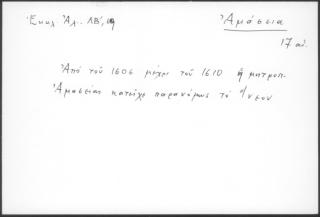 Ἐκκλ. Ἀλ. ΛΒ',
Ἀμάσεια
17 αἰ.
Ἀπὸ τοῦ 1606 μέχρι τοῦ 1610 ἡ μητροπ.
Ἀμασείας κατεῖχε παρανόμως τὸ